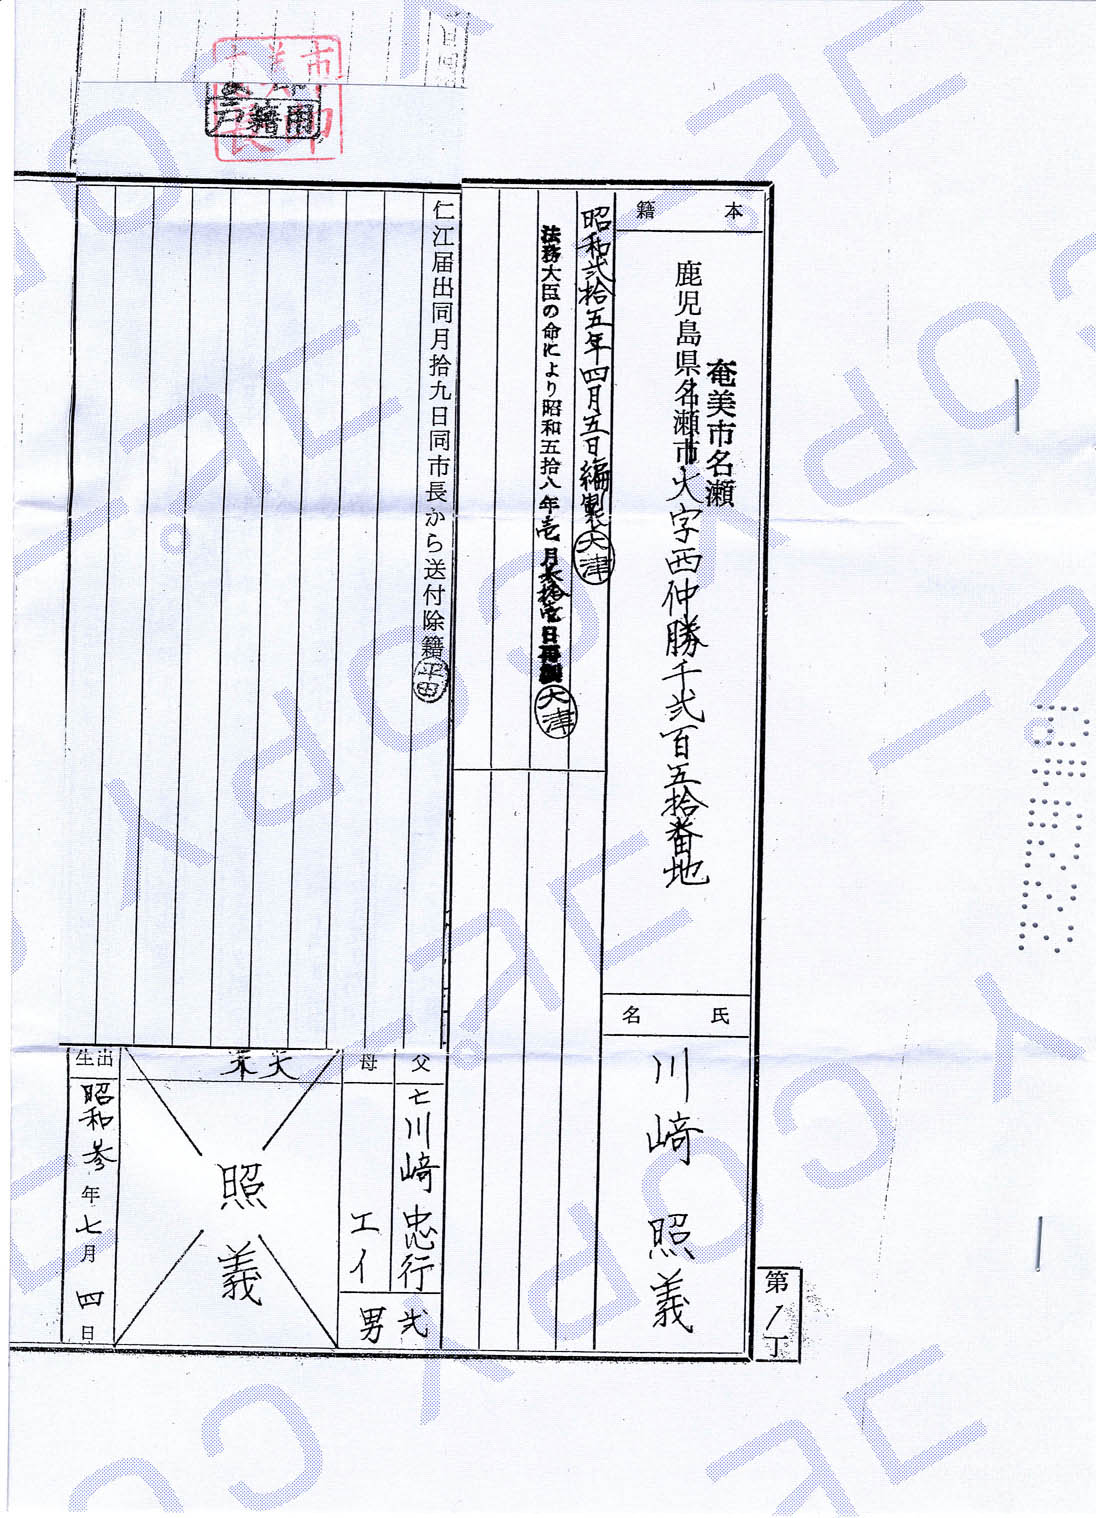 本籍
鹿児島県名瀬市大字西仲勝千弐百五拾番地
奄美市名瀬
氏名
川﨑照義
昭和弐拾五年四月五日編製
大津
法務大臣の命により昭和五拾八年壱月
日再製
大津
仁江届出同月拾九日同市長から送付除籍
平田
父
亡川﨑忠行
母
エイ
弐男
夫
照義
出生
昭和参年七月四日
第1丁
戸籍用
COPY
コピー